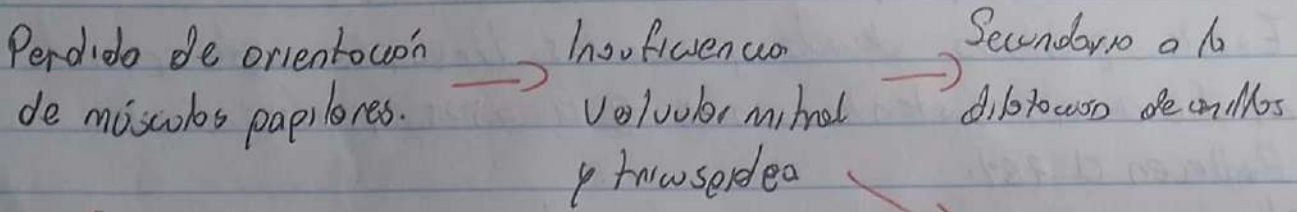 Perdida de orientación
de músculos papilares.
Insuficiencia
valvular mitral
y tricuspidea
Secundario a la
dilatacion de anillos